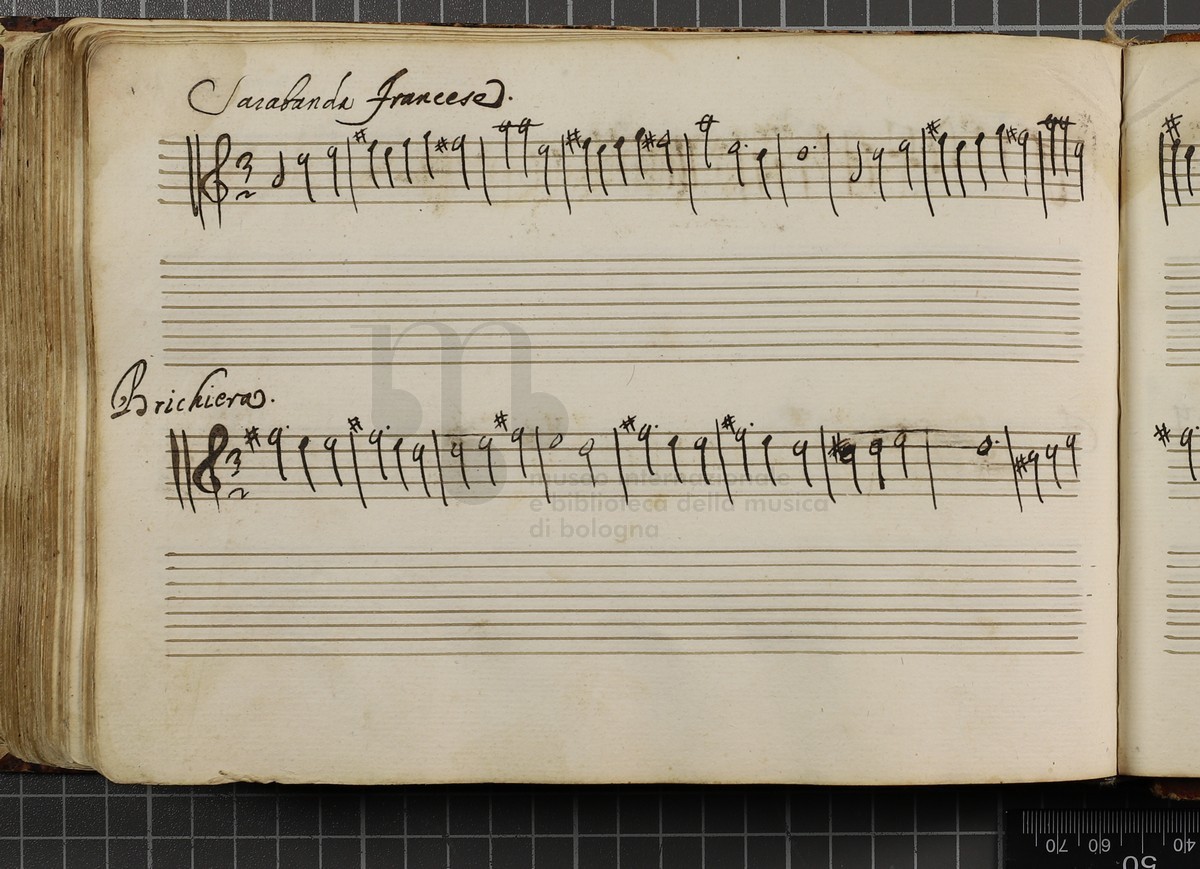 Sarabanda francese.
3
2
Brichiera.
3
2
m
museo internazionale
e biblioteca della musica
di bologna
70 60 50 40